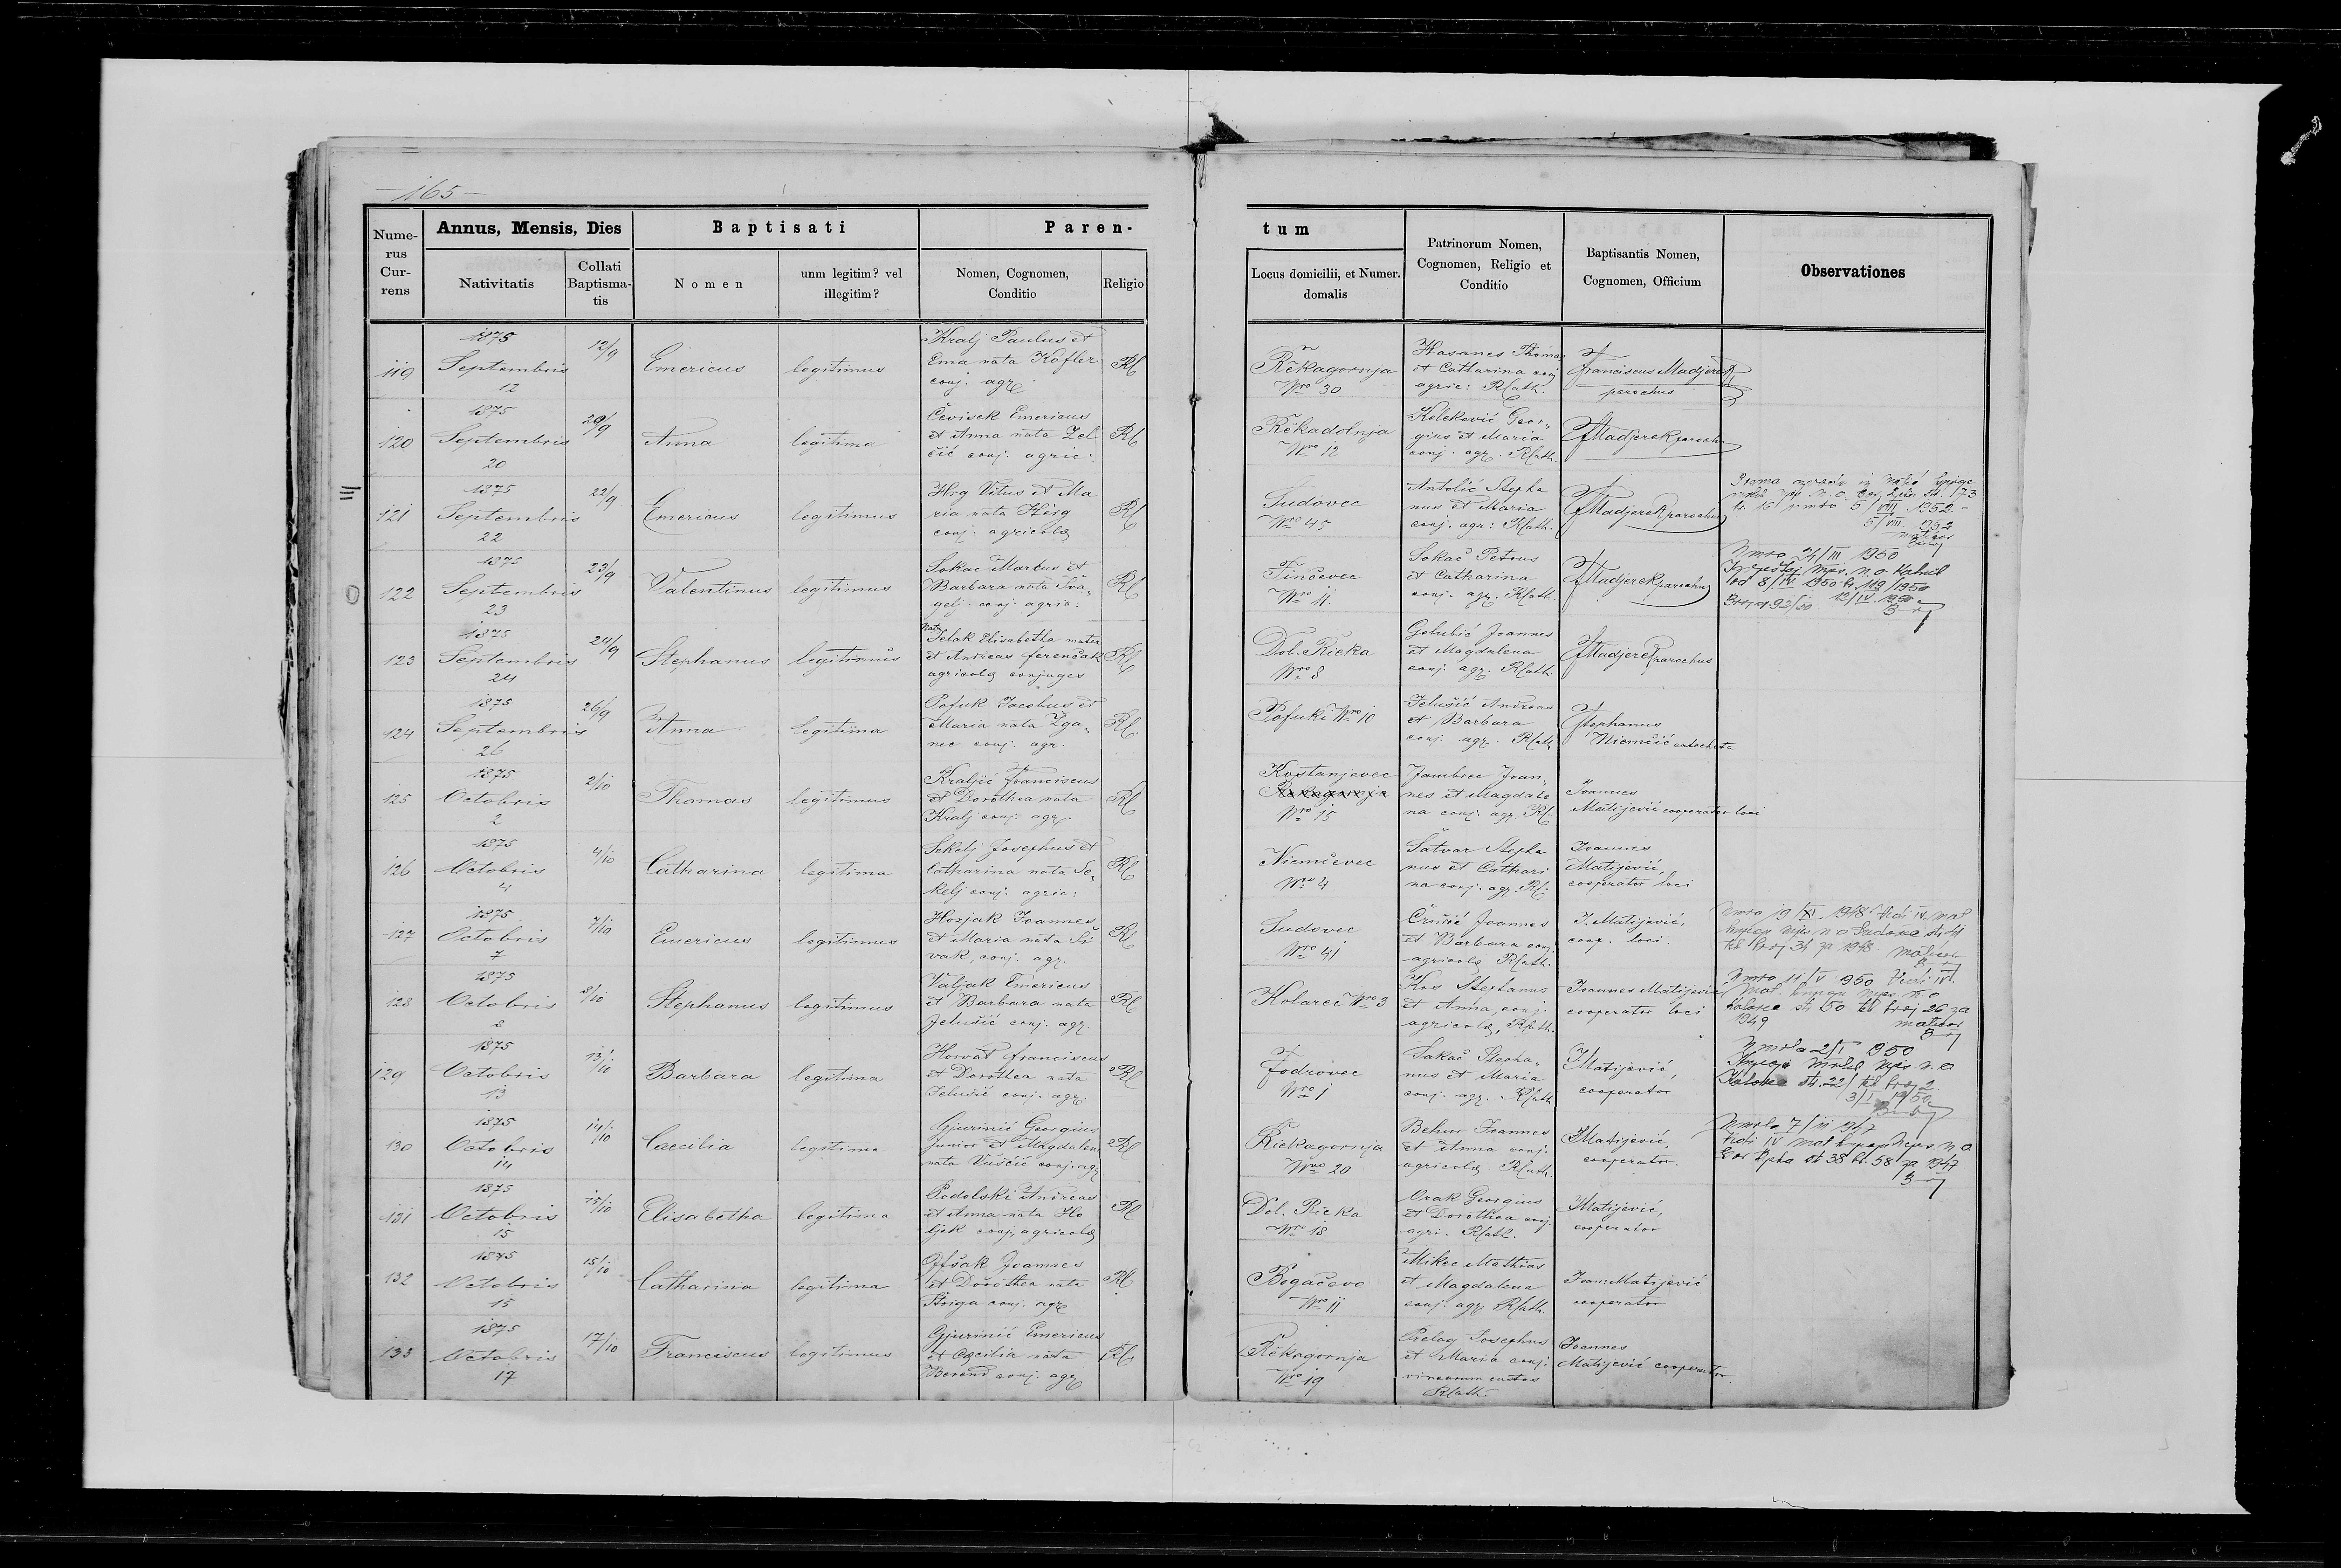 165
Nume-
rus
Cur-
rens
Annus, Mensis, Dies
Nativitatis
Collati
Baptisma-
tis
Baptisati
Nomen
unm legitim? vel
illegitim?
Paren-
Nomen, Cognomen,
Conditio
Religio
tum
Locus domicilii, et Numer.
domalis
Patrinorum Nomen,
Cognomen, Religio et
Conditio
Baptisantis Nomen,
Cognomen, Officium
Observationes
119
1875
Septembris
12
12/9
Emericus
legitimus
Kralj Paulus et
Ema nata Kofler
conj. agr.
Rc
Rěkagornja
Nro 30
Thoma
et Catharina conj
agric: Rcath.
Franciscus Madjerek
parochus
120
1875
Septembris
20
20/9
Anna
legitima
Čevisek Emericus
et Anna nata Zel
čić conj. agric:
Rc
Rěkadolnja
Nro 12
Keleković Geor,
gius et Maria
conj. agr. Rcath.
FMadjerek parochus
121
1875
Septembris
22
22/9
Emericus
legitimus
Hrg Vitus et Ma
ria nata Herg
conj. agricolæ
Rc
Sudovec
Nro 45
Antolić Stepha
nus et Maria
conj. agr: Rcath.
FMadjerek parochus
5/VIII. 1952.-
5/VIII. 1952
matičar
122
1875
Septembris
23
23/9
Valentinus
legitimus
Sokac Marcus et
Barbara nata Sva,
gelj conj. agric:
Rc
Tinčevec
Nro 11.
Sokač Petrus
et Catharina
conj. agr. Rcath.
FMadjerek parochus
Umro 24/III 1950
Izvještaj mjes. n.o. Kalnik
od 8/IV 1950 br. 119/1950
12/IV. 1950
123
1875
Septembris
24
24/9
Stephanus
legitimus
Nata
Jelak Elisabetha mater
et Andreas ferenčak
agricolæ conjuges
Rc
Dol. Rieka
Nro 8
Golubić Joannes
et Magdalena
conj. agr. Rcath.
FMadjerek parochus
124
1875
Septembris
26
26/9
Anna
legitima
Pofuk Jacobus et
Maria nata Zga,
nec conj. agr.
Rc
Pofuki Nro 10
Jelušić Andreas
et Barbara
conj. agr. Rcath
Stephanus
Niemčić catecheta
125
1875
Octobris
2
2/10
Thomas
legitimus
Kraljić Franciscus
et Dorothea nata
Kralj conj. agr.
Rc
Kostanjevec
Rěkagornja
Nro 15
Jambrec Joan,
nes et Magdale
na conj. agr. Rc.
Joannes
Matijević cooperator loci
126
1875
Octobris
4
4/10
Catharina
legitima
Sekelj Josephus et
Catharina nata Se,
kelj conj. agric:
Rc
Niemčevec
Nro 4
Šatvar Stepha
nus et Cathari
na conj. agr. Rc.
Joannes
Matijević,
cooperator loci
127
1875
Octobris
7
7/10
Emericus
legitimus
Horjak Joannes
et Maria nata Si
vak, conj. agr.
Rc
Sudovec
Nro 41
Črnčić Joannes
et Barbara conj.
agricolæ Rcath.
J. Matijević,
coop. loci.
Umro 19/XI. 1948. Vidi IV. mat
knjiga mjes. n o Sudovec str.
tek broj 34 za 1948. matičar
128
1875
Octobris
8
8/10
Stephanus
legitimus
Valjak Emericus
et Barbara nata
Jelušić conj. agr.
Rc
Kolarec Nro 3
Kos Stephanus
et Anna conj.
agricolæ, Rcath.
Joannes Matijević
cooperator loci
Umro 11/V 950 Vidi IV.
mat. knjigu mjes. n.o
Kalnik str. 50 tek broj 26 za
1949
matičar
129
1875
Octobris
13
13/10
Barbara
legitima
Horvat franciscus
et Dorothea nata
Jelušić conj. agr.
Rc
Fodrovec
Nro 1
Sakač Stepha,
nus et Maria
conj. agr. Rcath
J.
Matijević,
cooperator
Umrla 2/I 950
Knjiga mrtvih mjes. n. o
str. 22/ tek broj 2.
3/I. 1950.
130
1875
Octobris
14
14/10
Cæcilia
legitima
Gjurinić Georgius
junior et Magdalen
nata Vuščić conj. agr
Rc
Riekagornja
Nro 20
Behur Joannes
et Anna conj.
agricolæ. Rcath.
JMatijević,
cooperator.
Umrla 7/III 1947
Vidi IV mat knjigu mjes n. o
Gor Rjeka str 38 br. 58 za 1947
131
1875
Octobris
15
15/10
Elisabetha
legitima
Podolski Andreas
et Anna nata Ho
ljek conj, agricolæ
Rc
Dol. Rieka
Nro 18
Orak Georgius
et Dorothea conj.
agri. Rcath.
JMatijević,
cooperator
132
1875
Octobris
15
15/10
Catharina
legitima
Ofšak Joannes
et Dorothea nata
Štriga conj. agr
Rc
Bogačevo
Nro 11
Mikec Mathias
et Magdalena
conj. agr. Rcath.
Joan: Matijević
cooperator
133
1875
Octobris
17
17/10
Franciscus
legitimus
Gjurinić Emericus
et Cæcilia nata
Berend conj. agr
Rc
Rěkagornja
Nro 19
Prelog Josephus
et Maria conj.
vinearum custos
Rcath.
Joannes
Matijević cooperator.